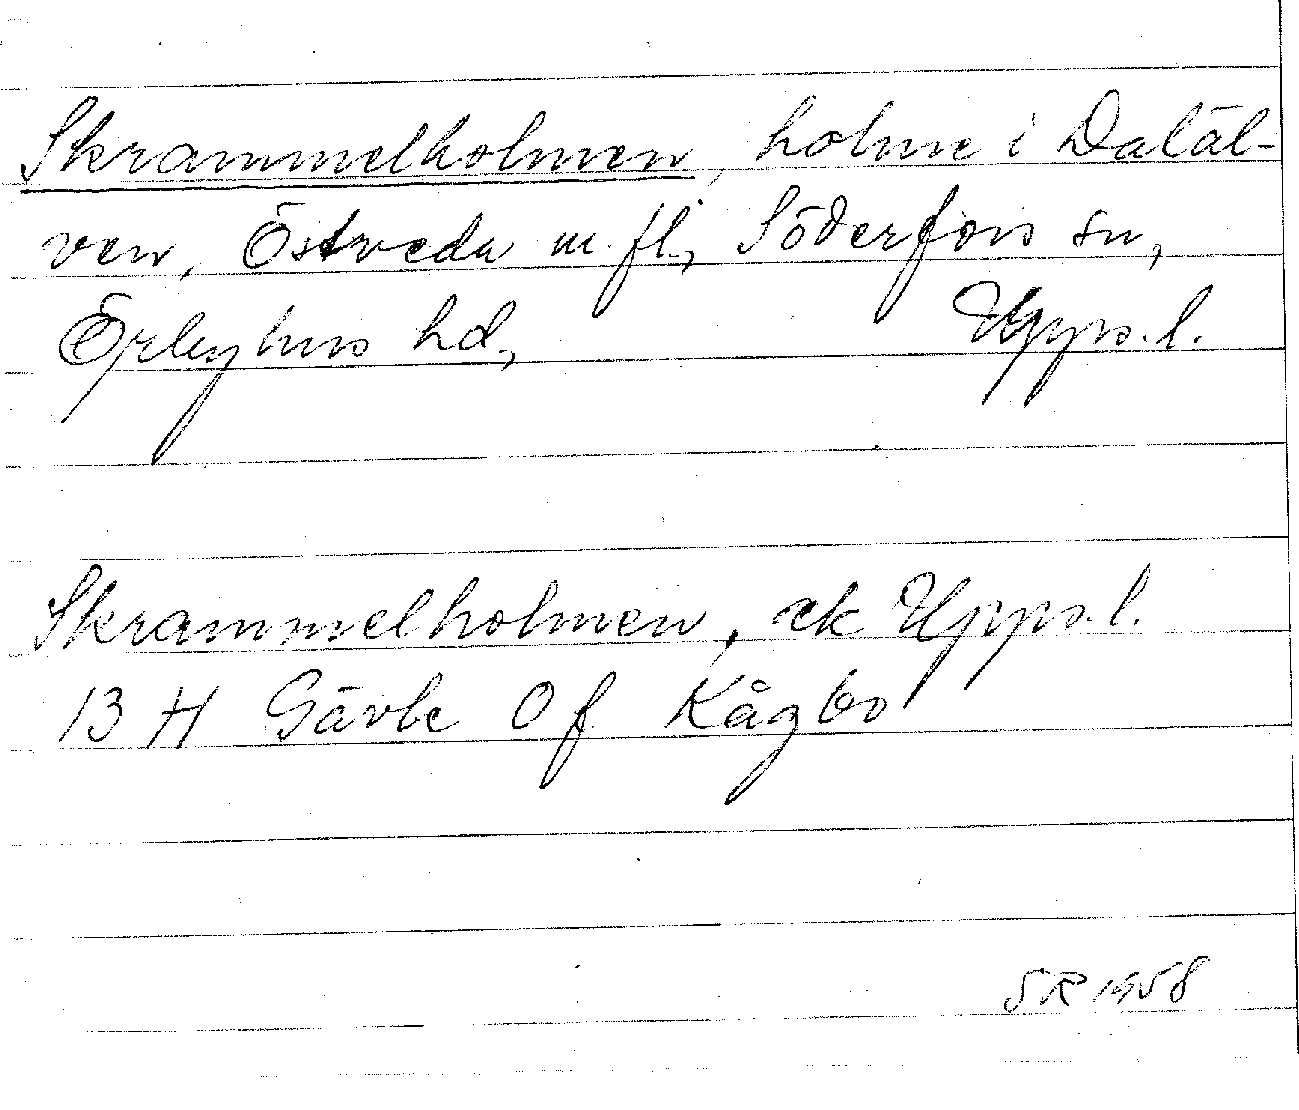 Skrammelholmen, holme i Daläl-
ven, Östveda m. fl., Söderfors sn,
Örbyhus hd, Upps. l.
Skrammelholmen, ek Upps. l.
13 H Gävle 0 f Kågbo
SR 1958